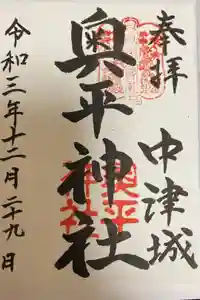 奉拝
中津城
奥平神社
令和三年十二月二十九日
奥平
神社